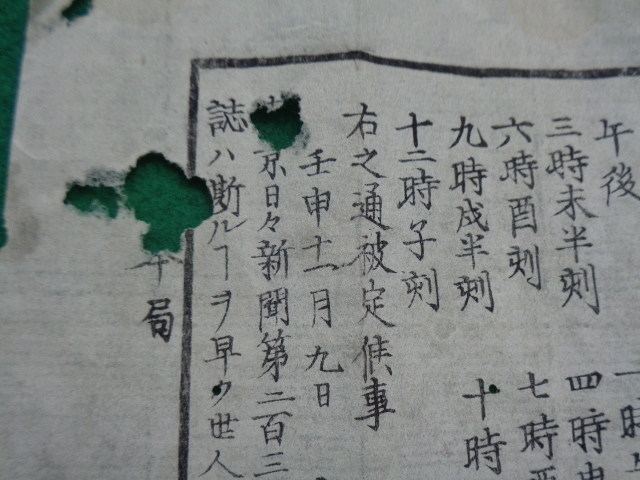 午後
三時未半刻
六時酉刻
九時戌半刻
十二時子刻
一時
四時申
七時酉
十時
右之通被定候事
壬申十一月九日
京日々新聞第二百三
誌ハ斯ルヿヲ早ク世人
局